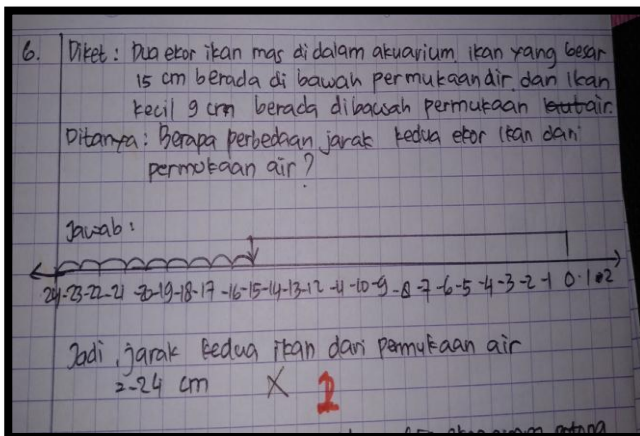 6. Diket : Dua ekor ikan mas di dalam akuarium, ikan yang besar
15 cm berada di bawah permukaan air, dan ikan
kecil 9 cm berada dibawah permukaan laut air.
Ditanya : Berapa perbedaan jarak kedua ekor ikan dari
permukaan air ?
Jawab :
24 -23 -22 -21 -20 -19 -18 -17 -16 -15 -14 -13 -12 -11 -10 -9 -8 -7 -6 -5 -4 -3 -2 -1 0 1 2
Jadi, jarak kedua ikan dari permukaan air
= -24 cm X 2